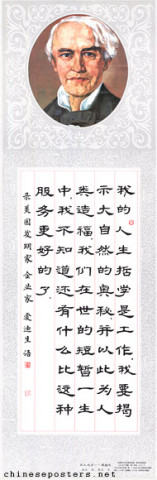 我的人生哲学是工作，我要揭
示大自然的奥秘，并以此为人
类造福。我们在世的短暂一生
中，我不知道还有什么比这种
服务更好的了。
录美国发明家 企业家 爱迪生语
chineseposters.net